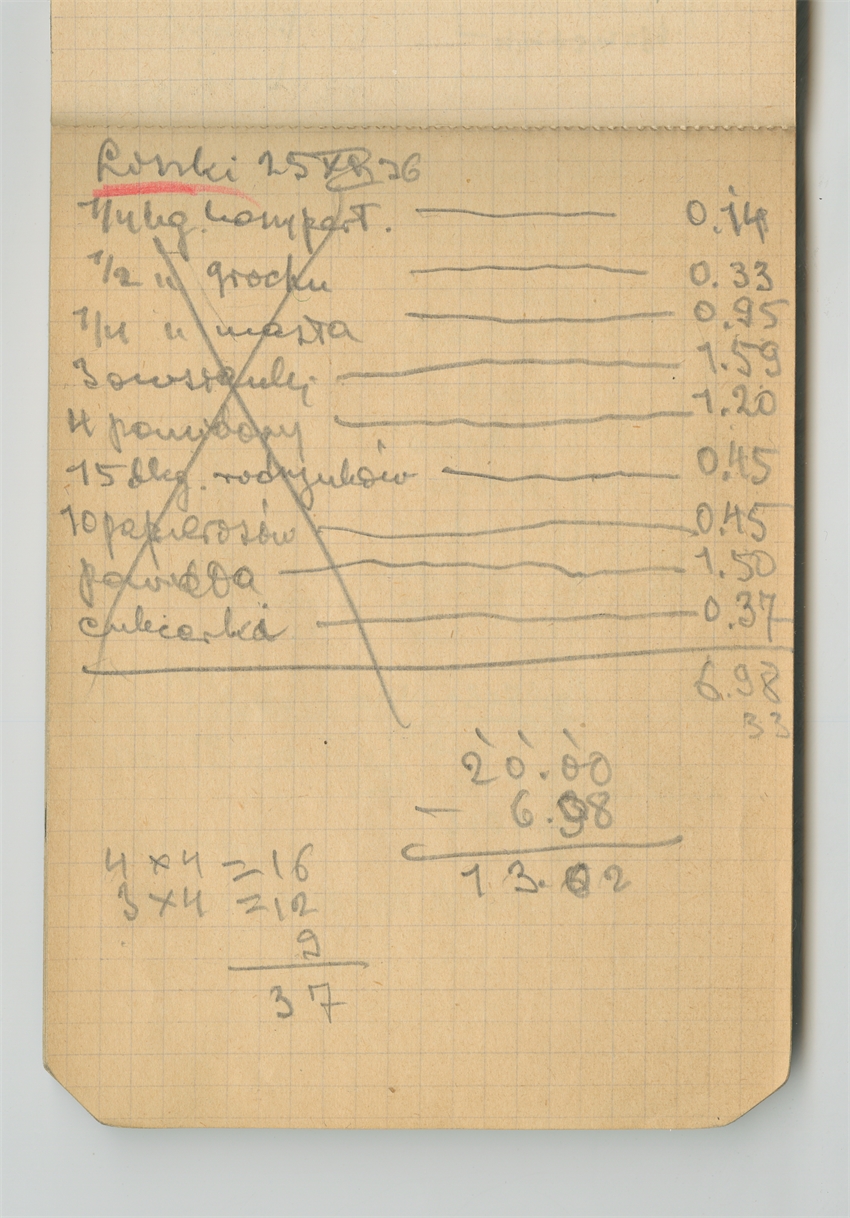 Loszki 25 XII 36
1/4 kg. kompert. 0.14
1/2 " grochu 0.33
1/4 " masła 0.95
3 owsianki 1.59
4 pomidory 1.20
15 dkg. rodzynków 0.45
10 papierosów 0.45
powidła 1.50
cukierki 0.37
6.98
33
20.00
– 6.98
13.02
4 × 4 = 16
3 × 4 = 12
9
37